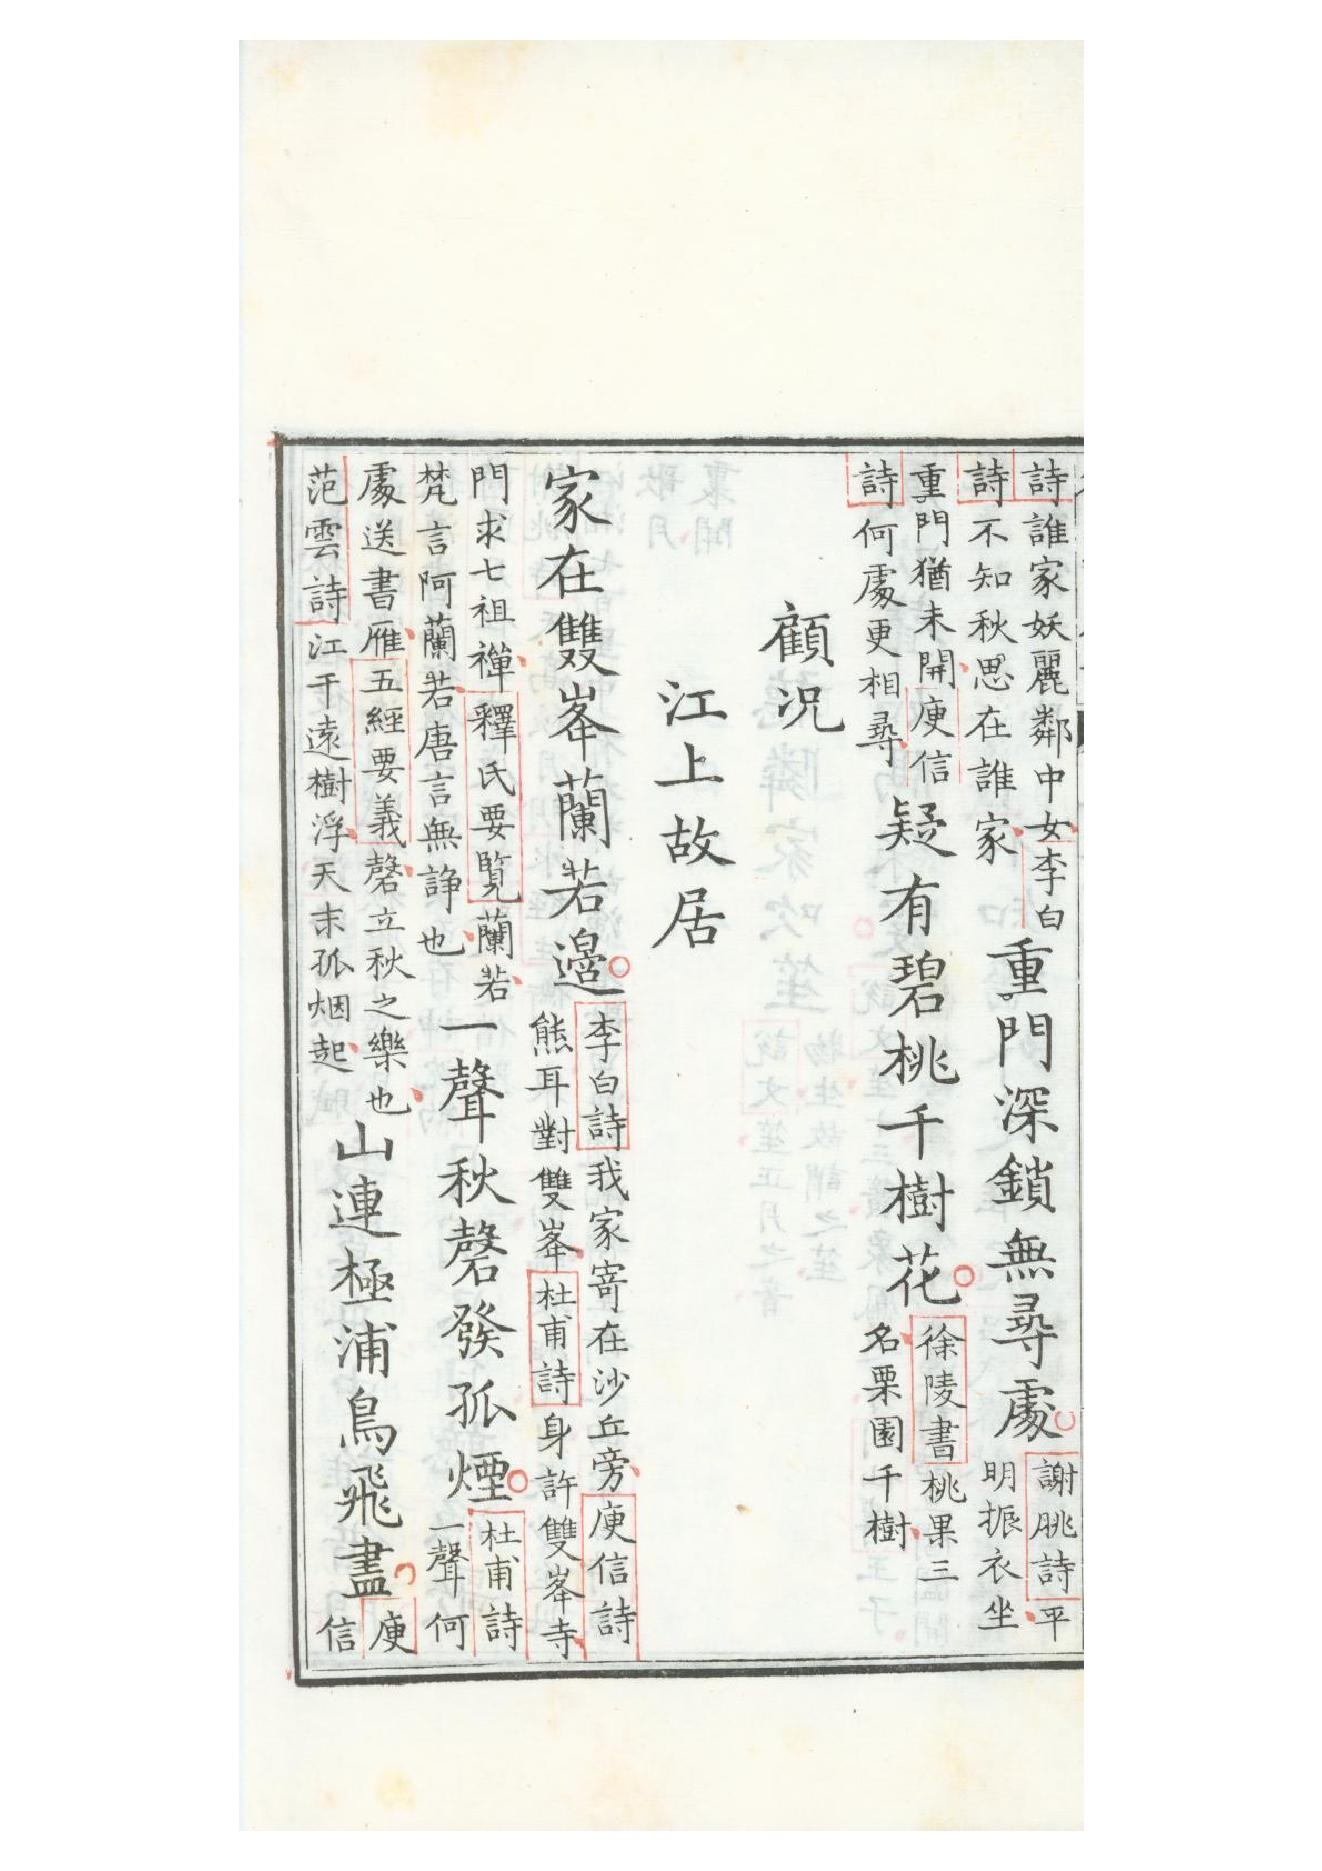 詩誰家妖麗鄰中女李白
詩不知秋思在誰家
重門深鎖無尋處
謝朓詩平
明振衣坐
重門猶未開庾信
詩何處更相尋
疑有碧桃千樹花
徐陵書桃果三
名栗園千樹
顧况
江上故居
家在雙峯蘭若邊
李白詩我家寄在沙丘旁庾信詩
熊耳對雙峯杜甫詩身許雙峯寺
門求七祖禪釋氏要覽蘭若
梵言阿蘭若唐言無諍也
一聲秋磬發孤煙
杜甫詩
一聲何
處送書雁五經要義磬立秋之樂也
范雲詩江干遠樹浮天末孤烟起
山連極浦鳥飛盡
庾
信